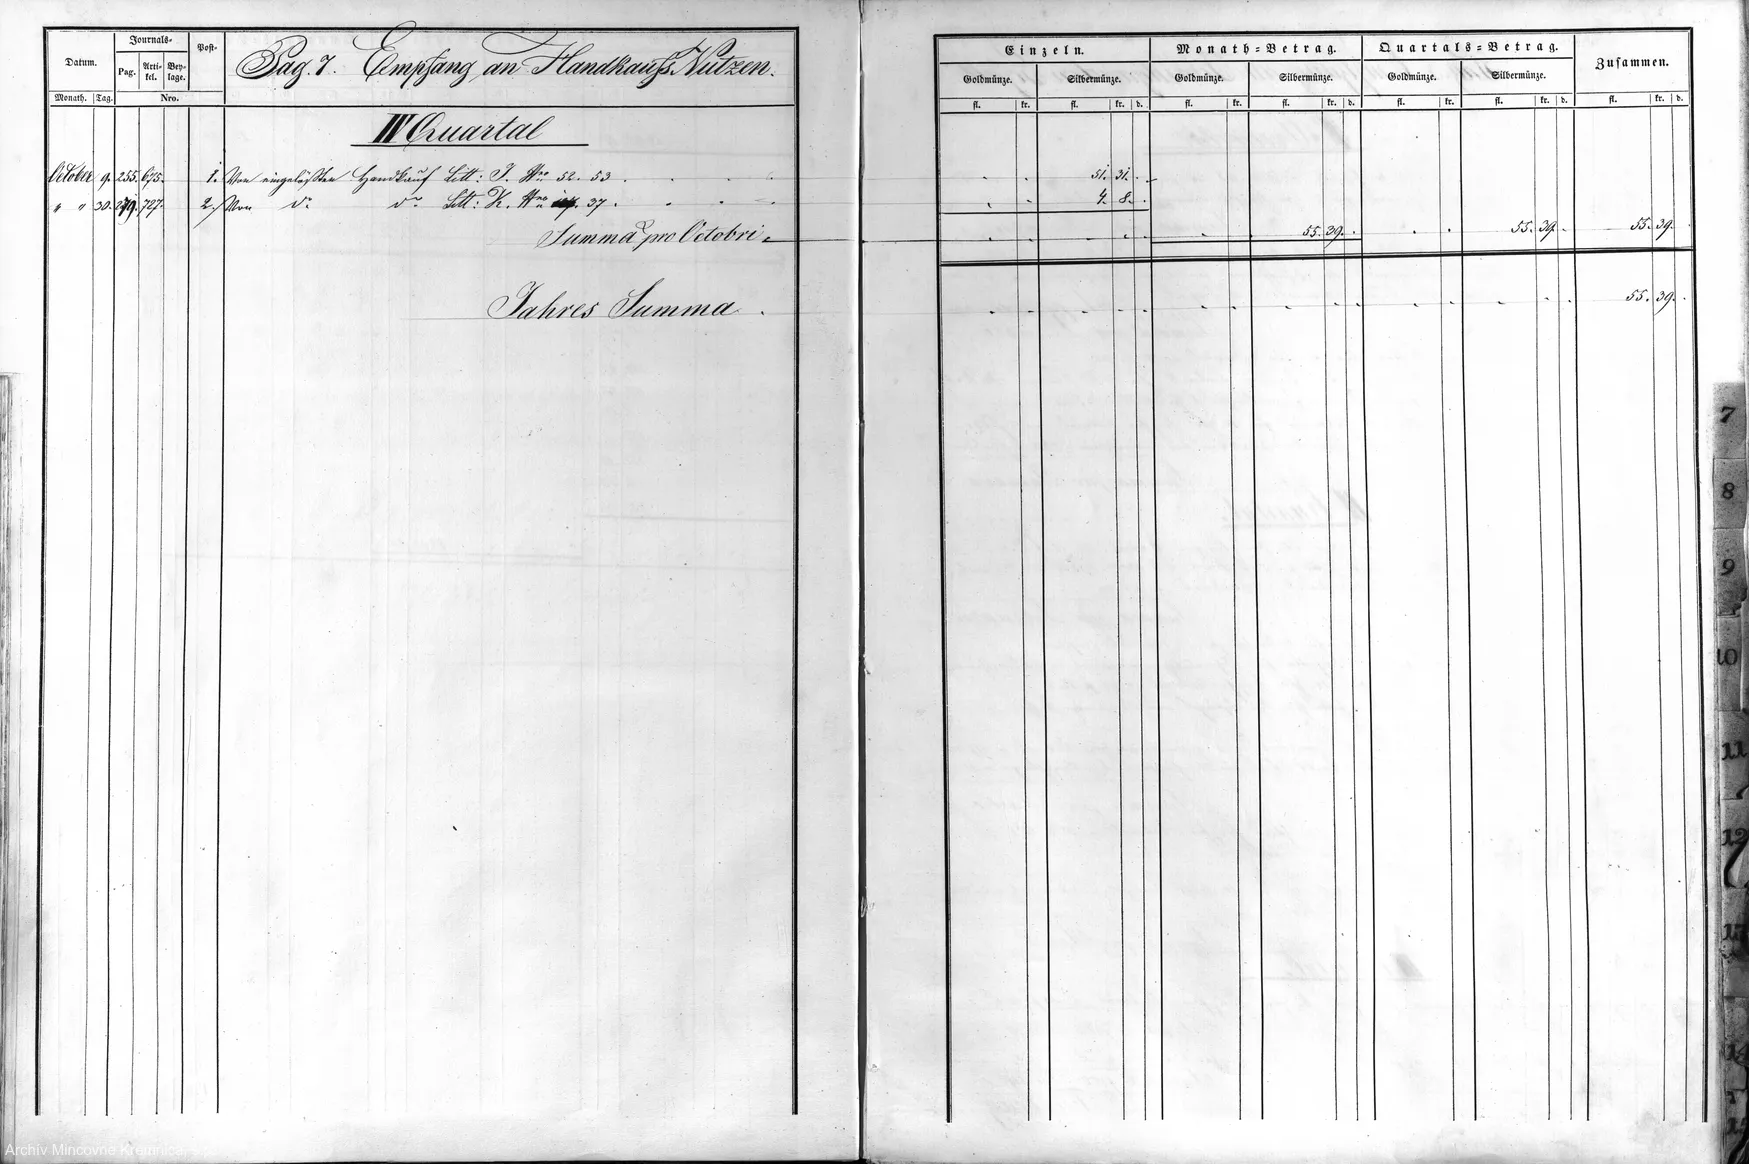 Datum.
Journals-
Pag.
Arti-
kel.
Bey-
lage.
Post-
Monath.
Tag.
Nro.
Pag. 7. Empfang an Handkaufs Nutzen.
IV Quartal
October 9. 255. 675. 1. Von eingelößten Handkauf Litt: J. Nro 52. 53
" " 30. 279. 727. 2. Von do do Litt: K. Nro 37.
Summa pro Octobri
Jahres Summa
Einzeln.
Monath-Betrag.
Quartals-Betrag.
Zusammen.
Goldmünze. Silbermünze. Goldmünze. Silbermünze. Goldmünze. Silbermünze.
fl. kr. fl. kr. d. fl. kr. fl. kr. d. fl. kr. fl. kr. d. fl. kr. d.
51. 31.
4. 8.
55. 39. 55. 39. 55. 39.
55. 39.
7
8
9
10
11
12
13
14
Archív Mincovne Kremnica,